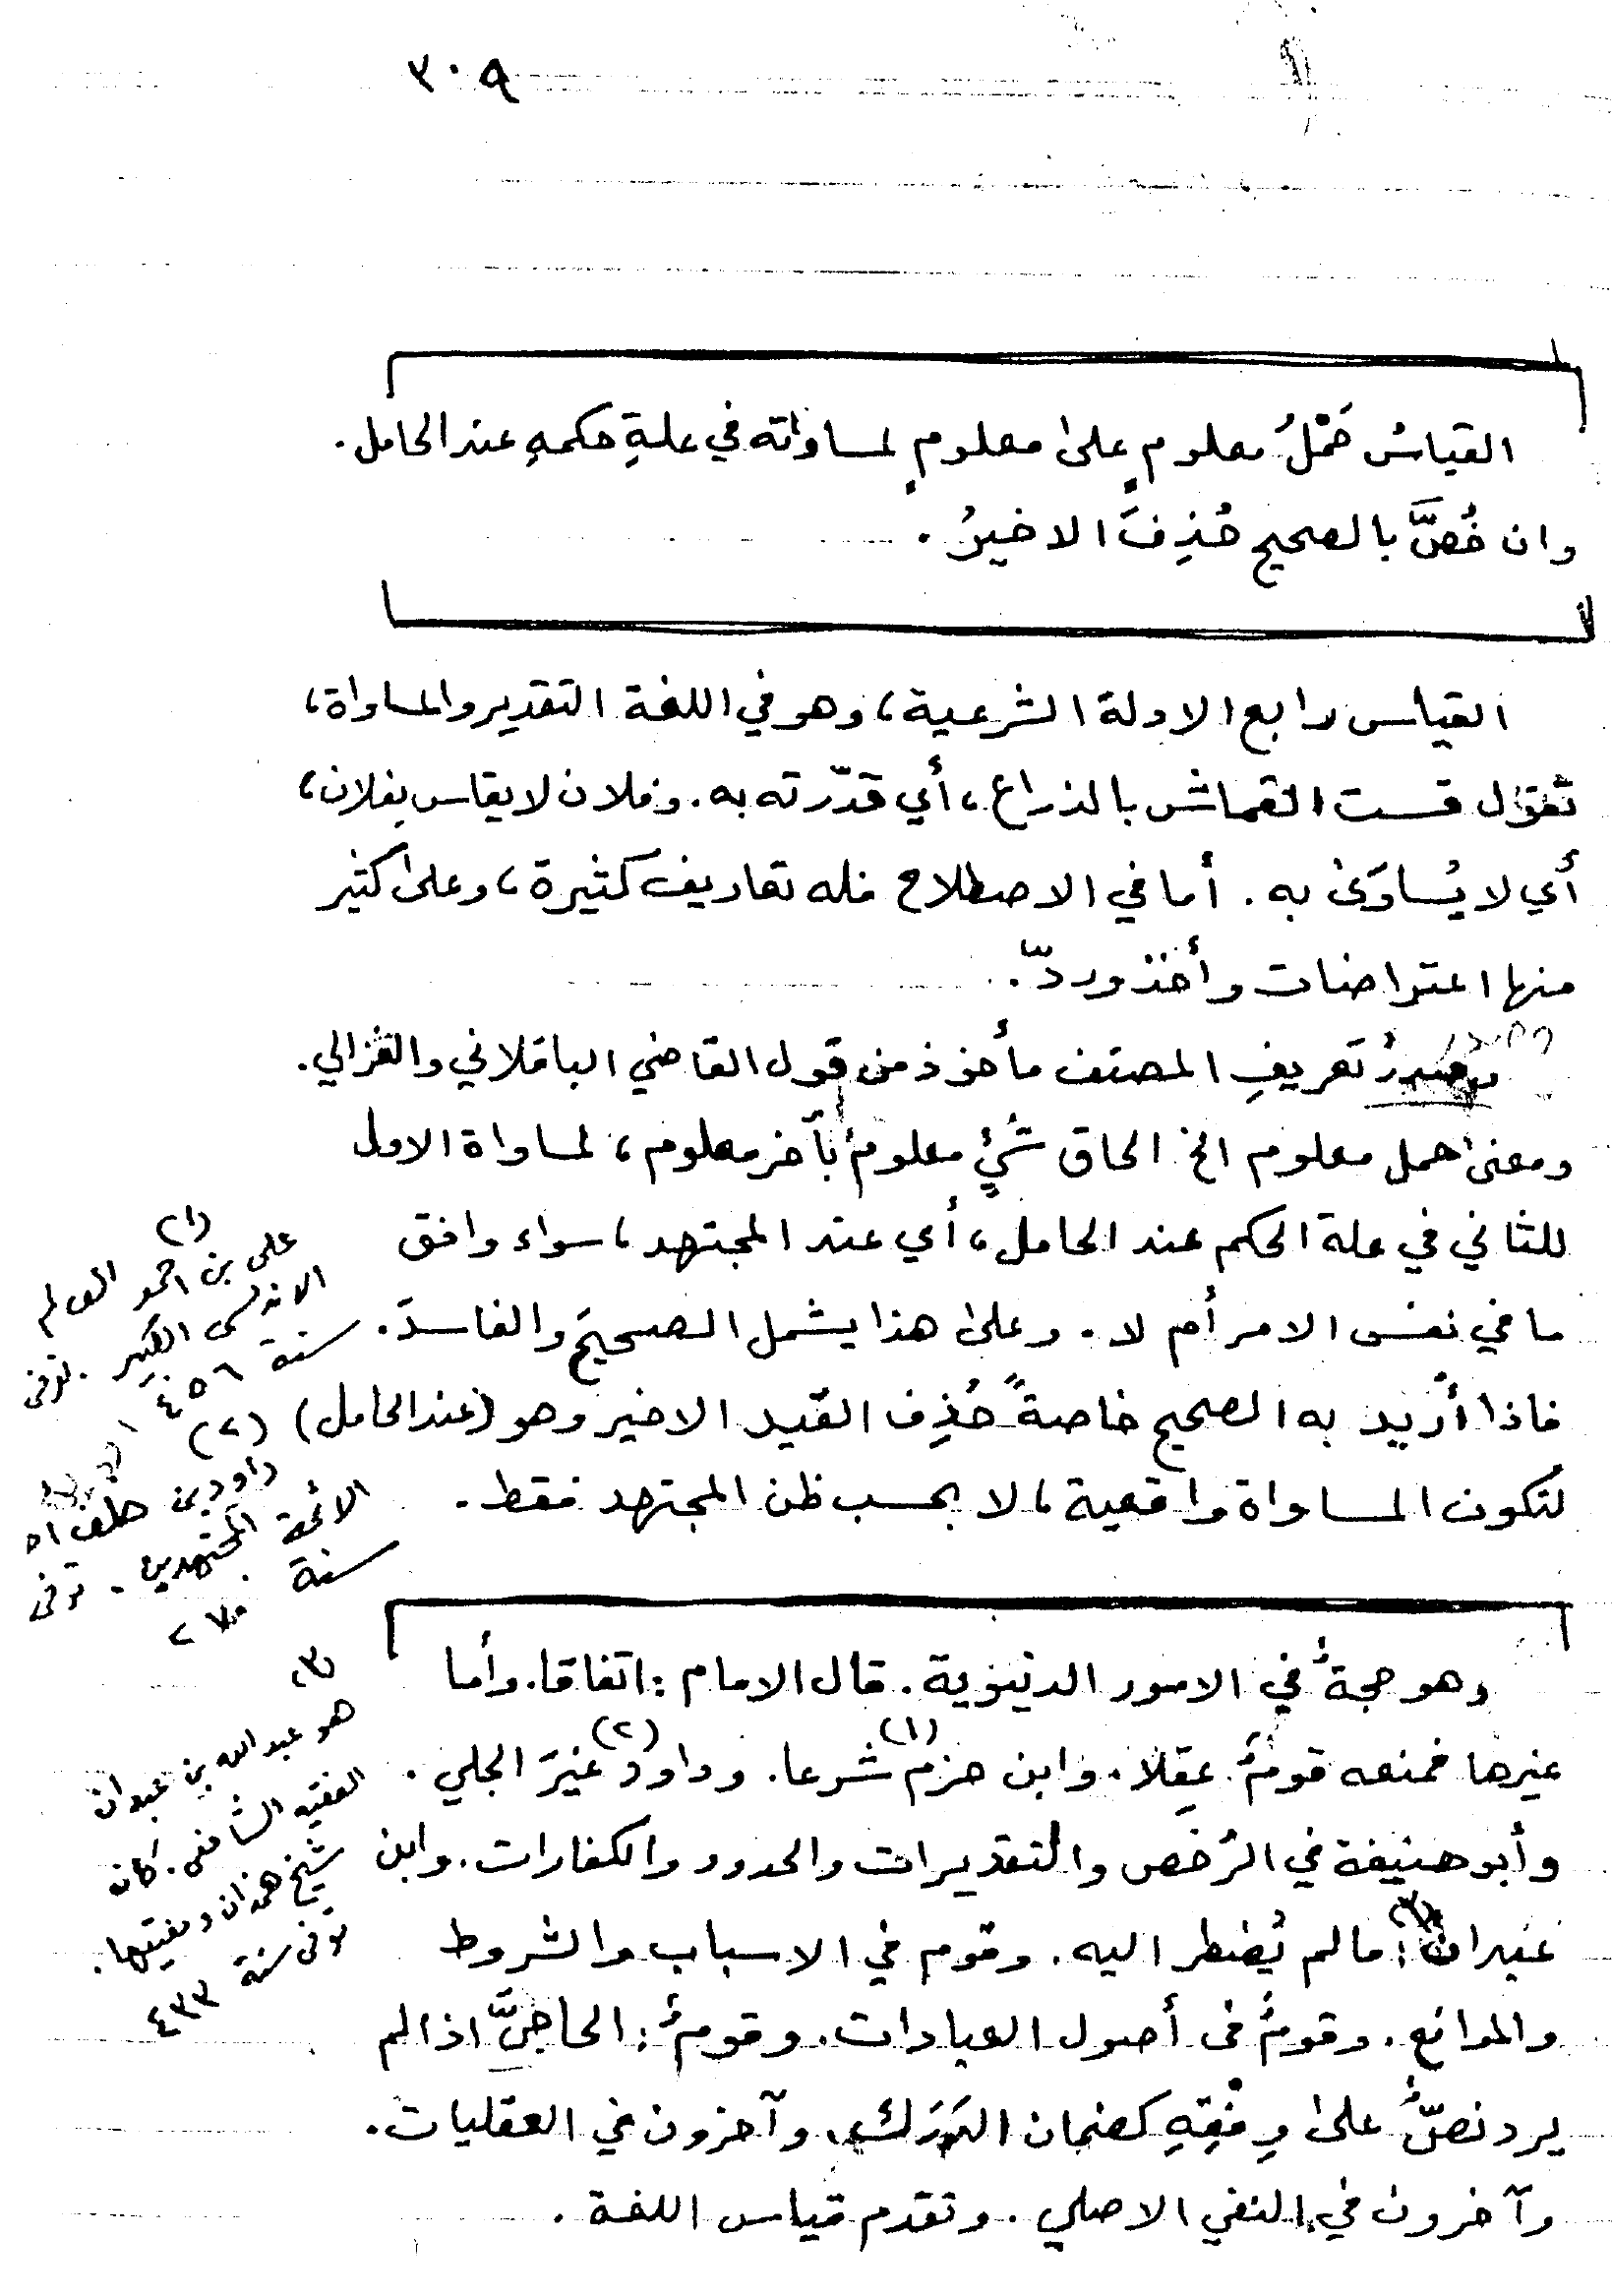 ٣٠٩
القياسُ حَمْلُ معلومٍ على معلومٍ لمساواته في علةِ حكمهِ عند الحامل.
وان خُصَّ بالصحيح حُذِفَ الاخيرُ.
القياس رابع الادلة الشرعية، وهو في اللغة التقدير والمساواة،
تقول قست القماش بالذراع، أي قدّرته به. وفلان لا يقاس بفلان،
أي لا يُساوَى به. أما في الاصطلاح فله تعاريف كثيرة، وعلى كثير
منها اعتراضات وأخذ وردّ.
تعريفِ المصنف مأخوذ من قول القاضي الباقلاني والغزالي.
ومعنى حمل معلوم الخ الحاق شيءٍ معلوم بآخر معلوم، لمساواة الاول
للثاني في علة الحكم عند الحامل، أي عند المجتهد، سواء وافق
ما في نفس الامر أم لا. وعلى هذا يشمل الصحيحَ والفاسدَ.
فاذا أُريد به الصحيح خاصةً حُذِف القيد الاخير وهو (عند الحامل)
لتكون المساواة واقعية، لا بحسب ظن المجتهد فقط.
وهو حجةٌ في الامور الدنيوية. قال الامام: اتفاقا. وأما
غيرها فمنعه قومٌ عقلا. وابن حزم (١) شرعا. وداود (٢) غيرَ الجلي.
وأبو حنيفة في الرُخص والتقديرات والحدود والكفارات. وابن
عبدان (٣): ما لم يُضطر اليه. وقوم في الاسباب والشروط
والموانع. وقومٌ في أصول العبادات. وقومٌ: الحاجيَّ اذا لم
يرد نصٌّ على وِفْقِهِ كضمان الدَرَك، وآخرون في العقليات.
وآخرون في النفي الاصلي. وتقدم قياس اللغة.
(١)
على بن احمد العالم
الاندلسى الكبير. توفى
سنة ٤٥٦
(٢)
داود بن خلف
الائمة المجتهدين. توفى
سنة ٢٧٠
(٣)
هو عبد الله بن عبدان
الفقيه الشافعى. كان
شيخ همدان ومفتيها.
توفى سنة ٤٣٣